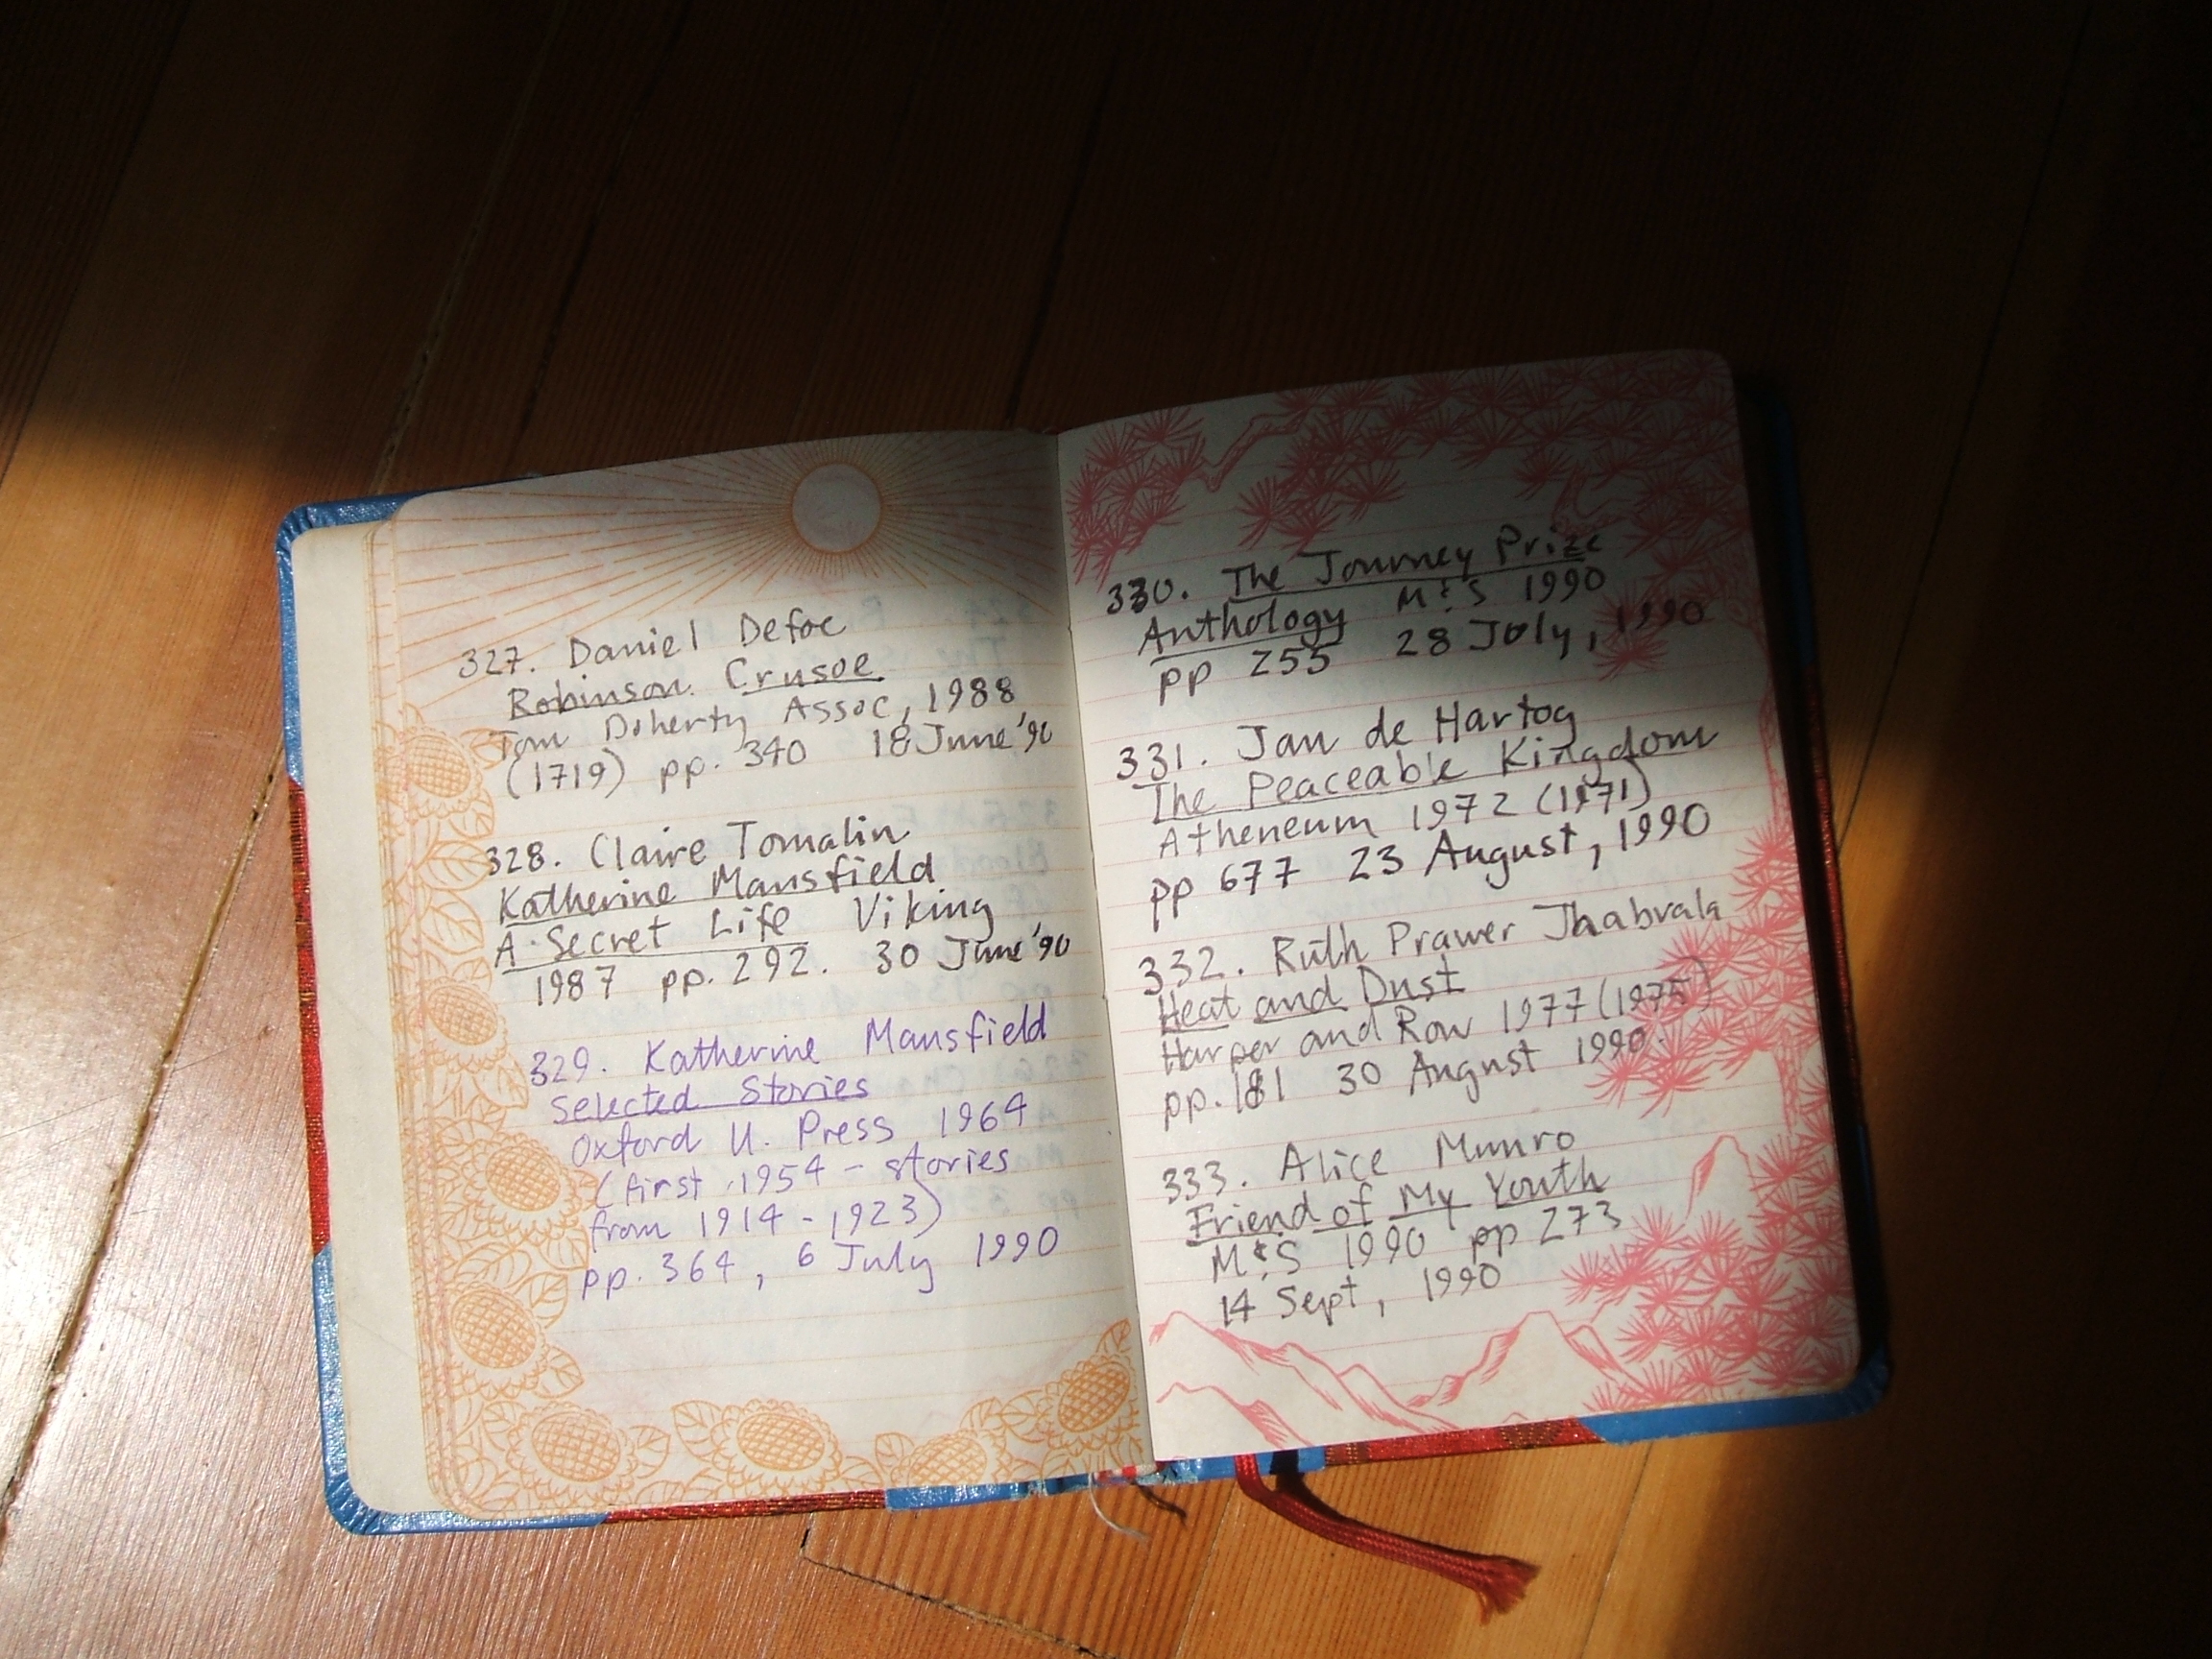 327. Daniel Defoe
Robinson Crusoe
Tom Doherty Assoc, 1988
(1719) pp. 340 18 June '90
328. Claire Tomalin
Katherine Mansfield
A Secret Life Viking
1987 pp. 292. 30 June '90
329. Katherine Mansfield
Selected Stories
Oxford U. Press 1964
(first 1954 - stories
from 1914 - 1923)
pp. 364, 6 July 1990
330. The Journey Prize
Anthology M&S 1990
pp 255 28 July, 1990
331. Jan de Hartog
The Peaceable Kingdom
Atheneum 1972 (1971)
pp 677 23 August, 1990
332. Ruth Prawer Jhabvala
Heat and Dust
Harper and Row 1977 (1975)
pp. 181 30 August 1990.
333. Alice Munro
Friend of My Youth
M&S 1990 pp 273
14 Sept, 1990